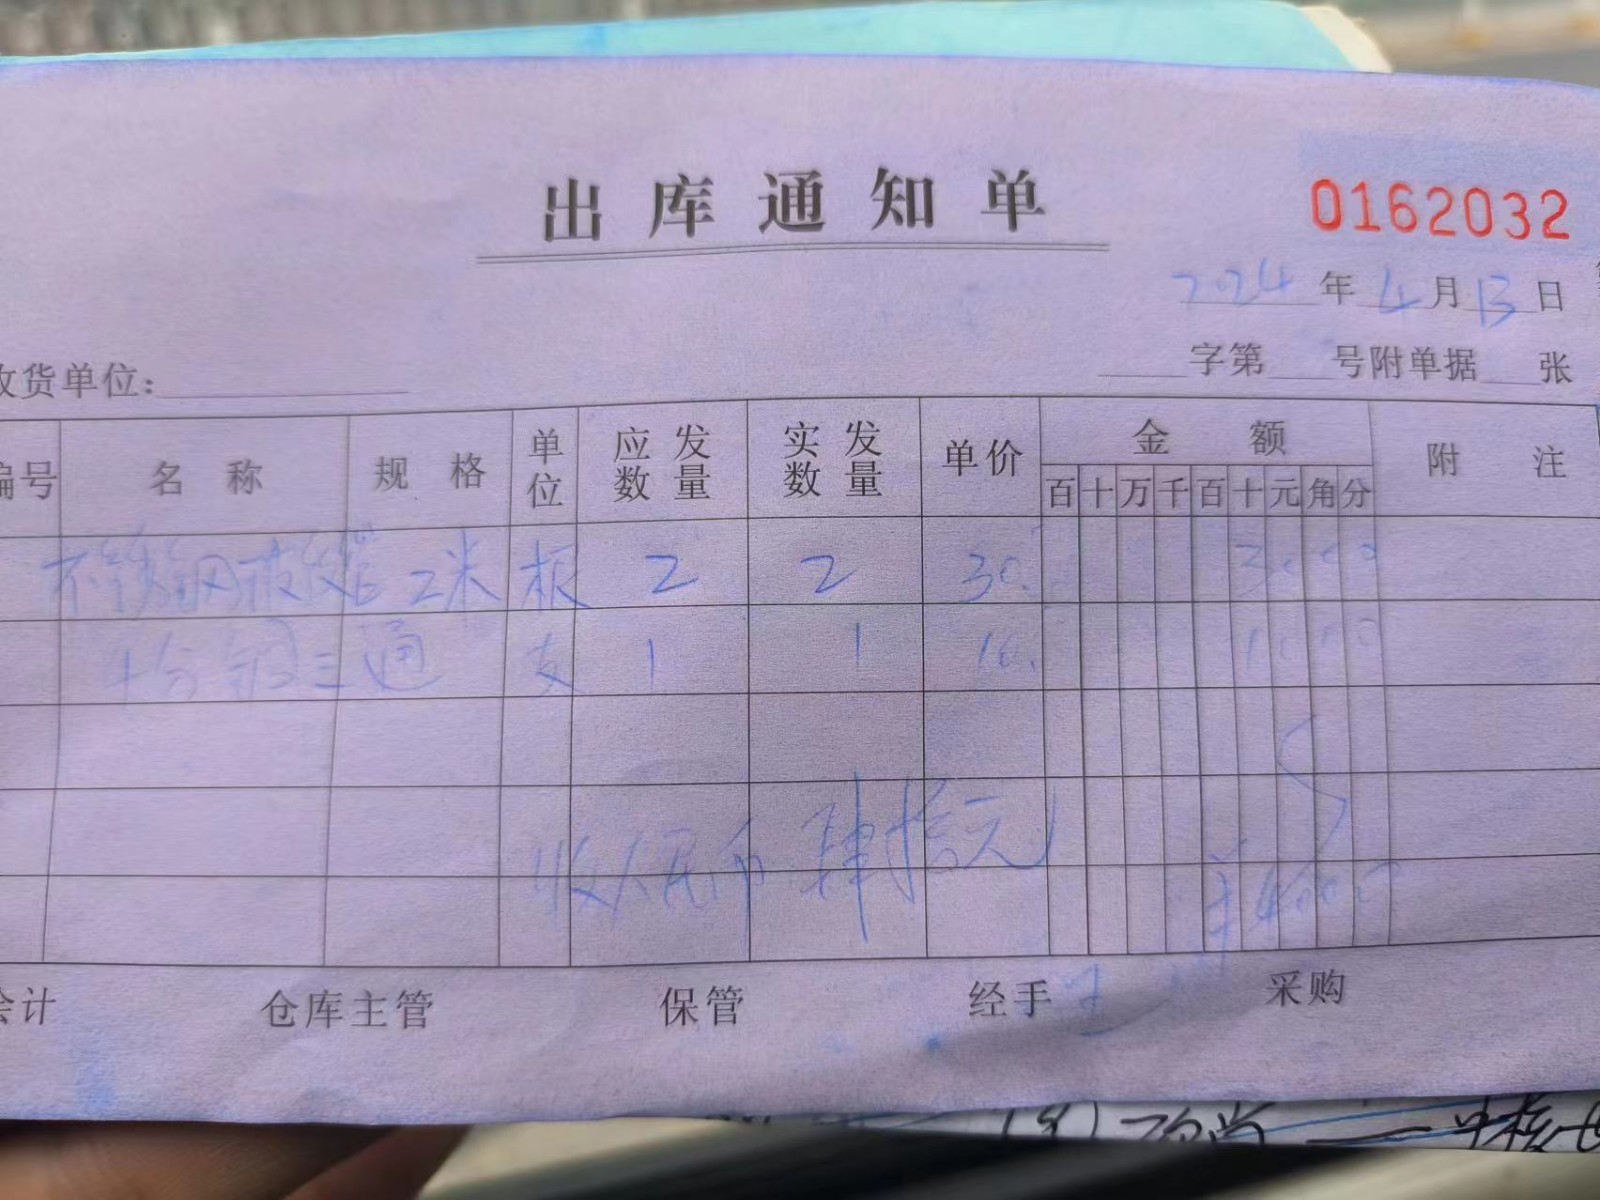 出库通知单
0162032
2024年4月13日
收货单位:
字第 号附单据 张
编号 名称 规格 单位 应发数量 实发数量 单价 金额 附注
百十万千百十元角分
不锈钢波纹管 2米 根 2 2 30. 3000
4分铜三通 支 1 1 10. 1000
收人民币肆拾元
¥4000
会计 仓库主管 保管 经手 采购